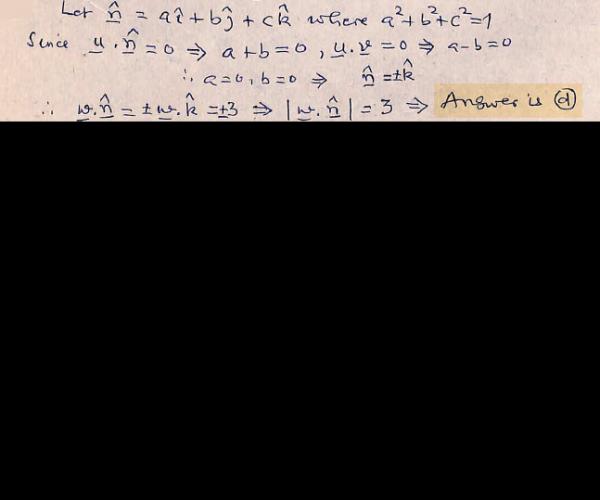 Let n̂ = aî + bĵ + ck̂ where a²+b²+c²=1
Since u . n̂ = 0 ⇒ a+b=0 , u . v = 0 ⇒ a-b=0
∴ a=0, b=0 ⇒ n̂ = ±k̂
∴ w . n̂ = ± w . k̂ = ±3 ⇒ |w . n̂| = 3 ⇒ Answer is (d)